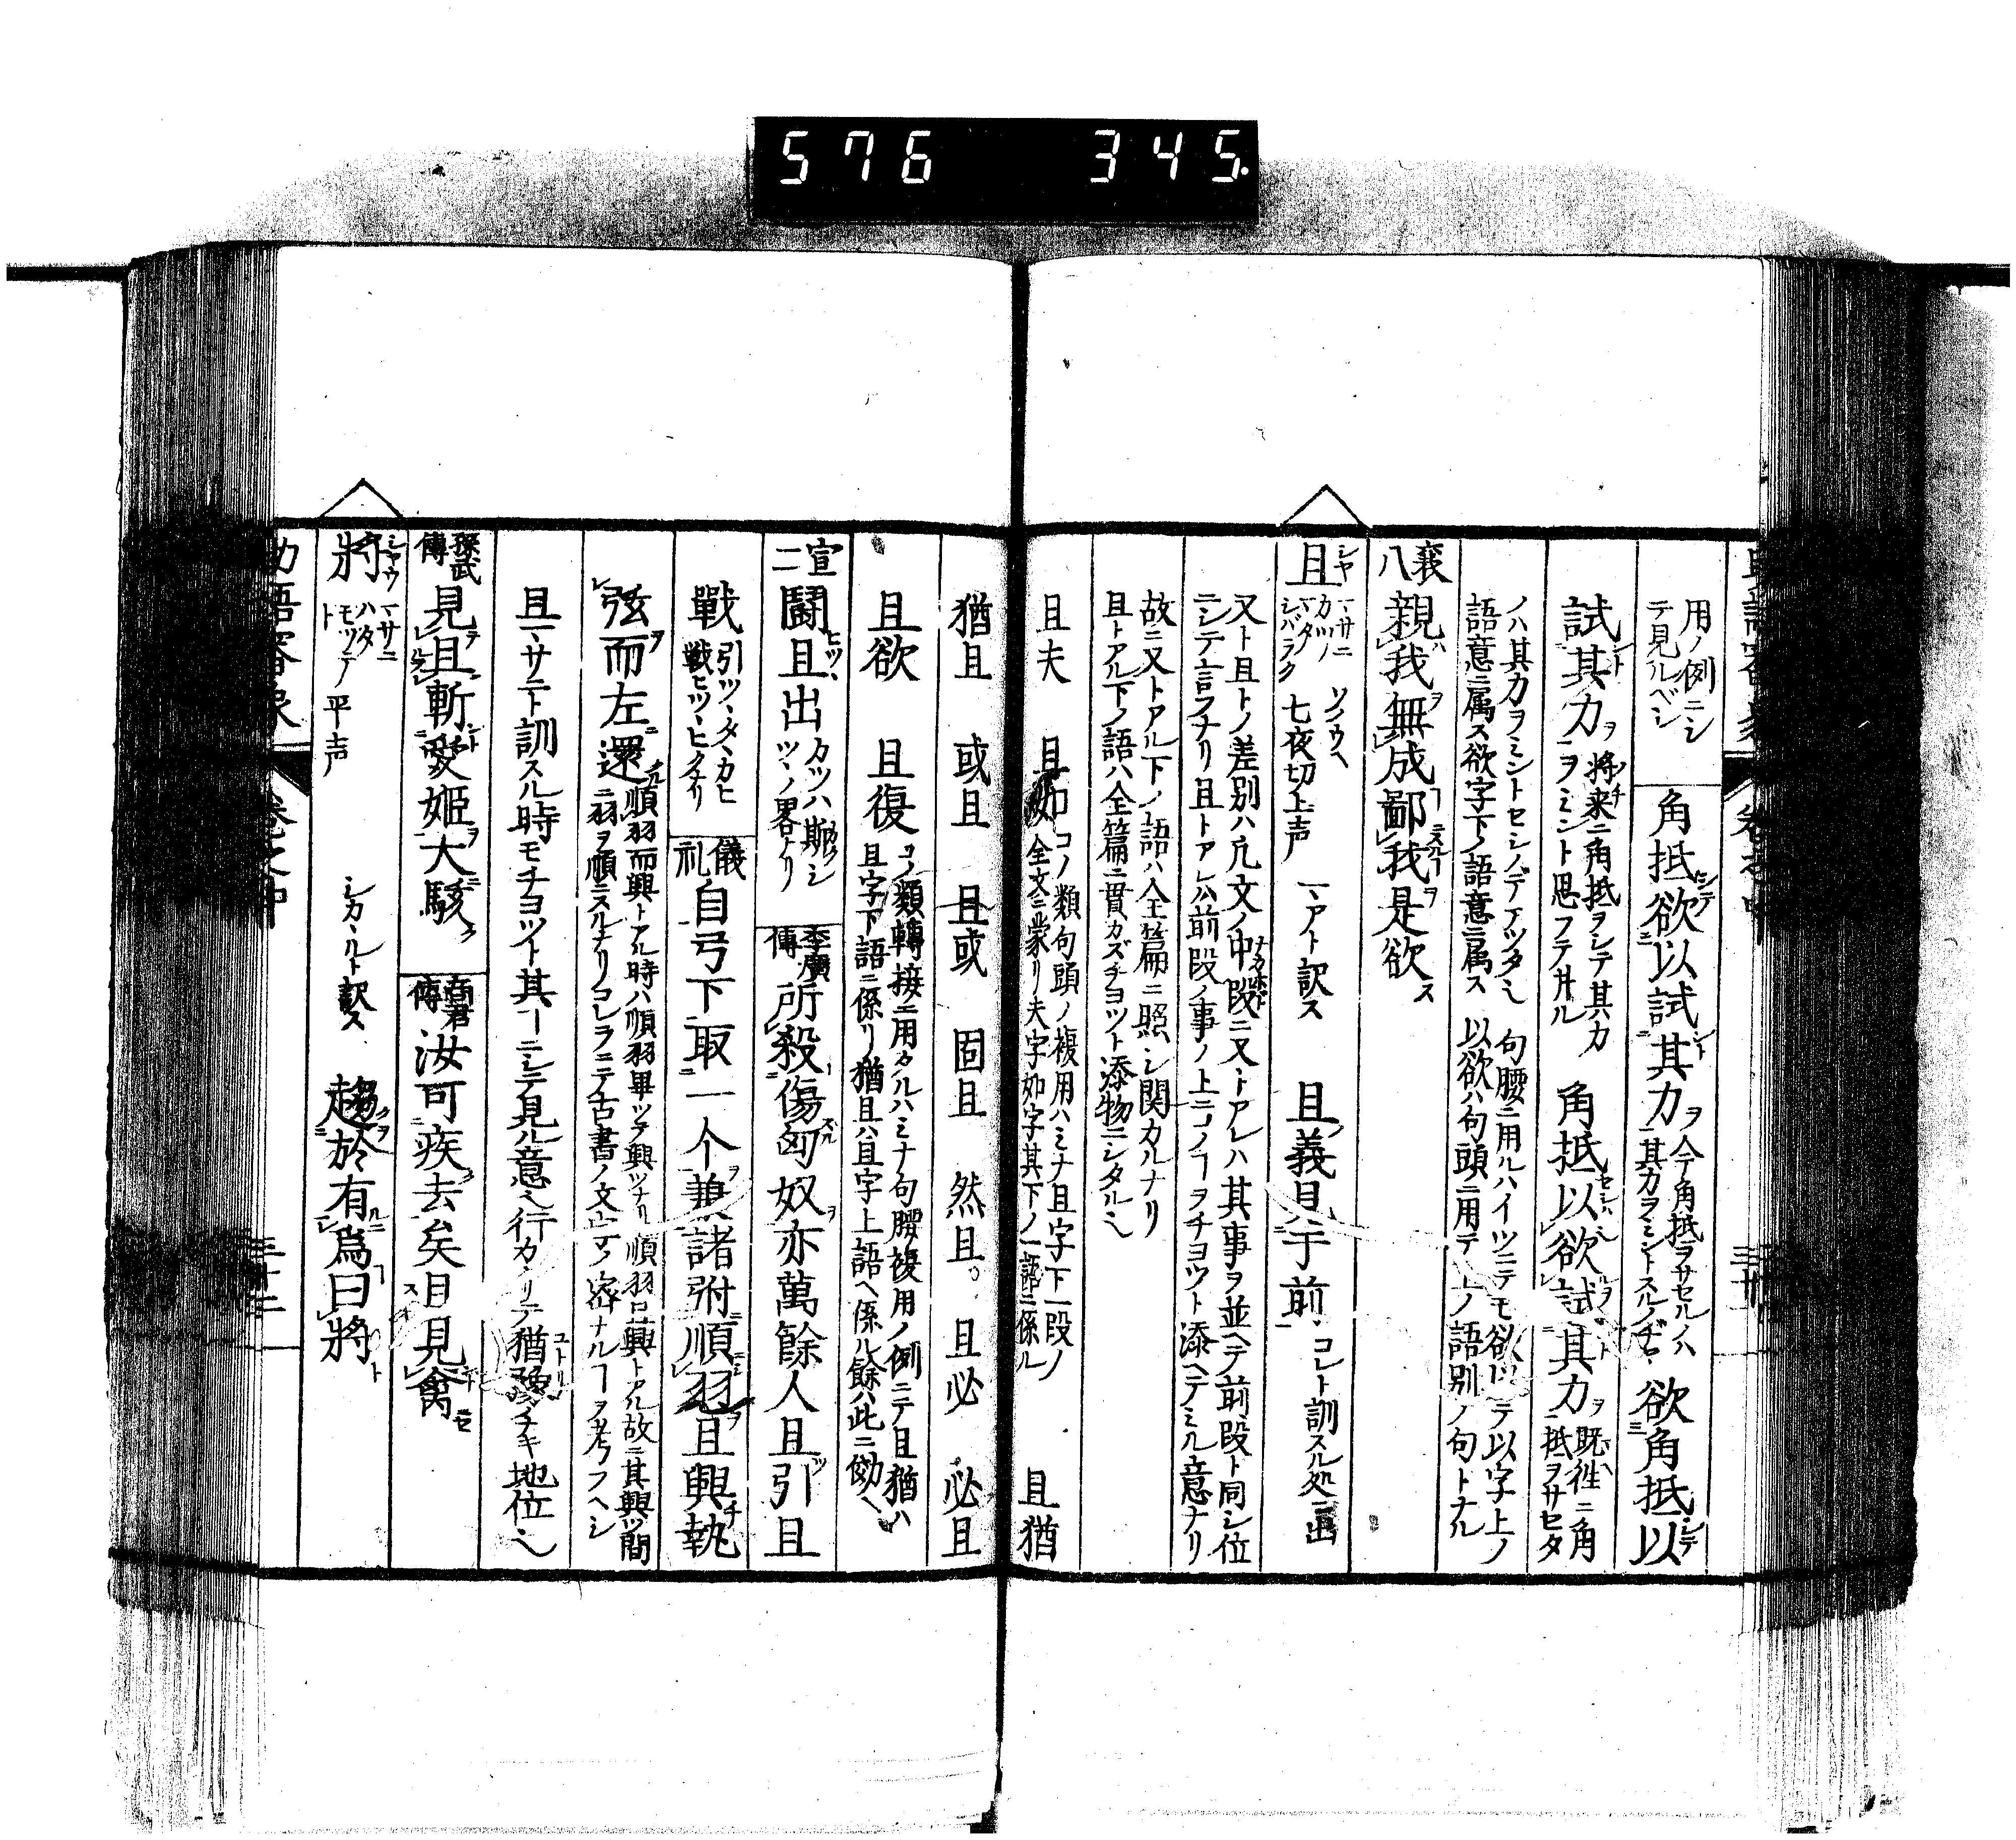 576 345.
用ノ例ニシ
テ見ルベシ
角抵欲以試其力
今角抵ヲサセルハ
其力ヲミントスルノヂヤ
欲角抵以
試其力
将来ニ角抵ヲシテ其力
ヲミント思フテ井ル
角抵以欲試其力
既徃ニ角
抵ヲサセタ
ノハ其力ヲミントセシノデアツタ也
句腰ニ用ルハイツニテモ欲以ニテ以字上ノ
語意ニ属ス欲字下ノ語意ニ属ス
以欲ハ句頭ニ用テ上ノ語別ノ句トナル
襄八
親我無成鄙我是欲
且
シヤ
マサニ
カツ
シバラク
七夜切上声
マアト訳ス
且義見于前
コレト訓スル処ニ出
又ト且トノ差別ハ凡文ノ中段ニ又トアレハ其事ヲ並ヘテ前段ト同シ位
ニシテ言フナリ且トアレハ前段ノ事ノ上ニコノヿヲチヨツト添ヘテミル意ナリ
故ニ又トアル下ノ語ハ全篇ニ照シ関カルナリ
且トアル下ノ語ハ全篇ニ貫カズチヨツト添物ニシタル也
且夫 且如
コノ類句頭ノ複用ハミナ且字下一段ノ
全文ニ蒙リ夫字如字其下ノ一語ニ係ル
且猶
猶且 或且 且或 固且 然且 且必 必且
且欲 且復
コノ類轉接ニ用タルハミナ句腰複用ノ例ニテ且猶ハ
且字下語ニ係リ猶且ハ且字上語ヘ係ル餘ハ此ニ効ヘ
宣二
鬪且出
カツハ斯カツシ
ツヽノ畧ナリ
李廣傳
所殺傷匈奴亦萬餘人且引且
戰
引ツヽタヽカヒ
戦ヒツヽヒクナリ
儀礼
自弓下取一个兼諸弣順羽且興執
弦而左還
順羽而興トアル時ハ順羽畢ツテ興ツナリ順羽且興トアル故ニ其興ツ間
ニ羽ヲ順ニスルナリコレラニテ古書ノ文字ノ密ナルヿヲ考フヘシ
且マサニト訓スル時モチヨツト其ヿニシテ見ル意也行カヽリテ猶豫ノナキ地位也
孫武傳
見且斬愛姬大駭
商君傳
汝可疾去矣且見禽
將
シヤウ
マサニ
ハタ
モツテ
ト
平声
シカヽルト訳ス
趨於有爲曰將
助語審象
卷之中
三十二